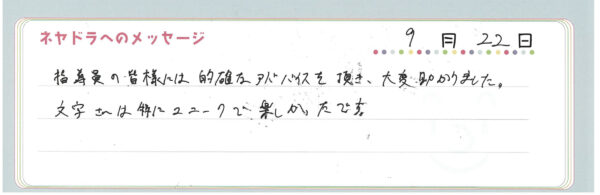 ネヤドラへのメッセージ
9月22日
指導員の皆様には的確なアドバイスを頂き、大変助かりました。
文字さんは特にユニークで楽しかったです